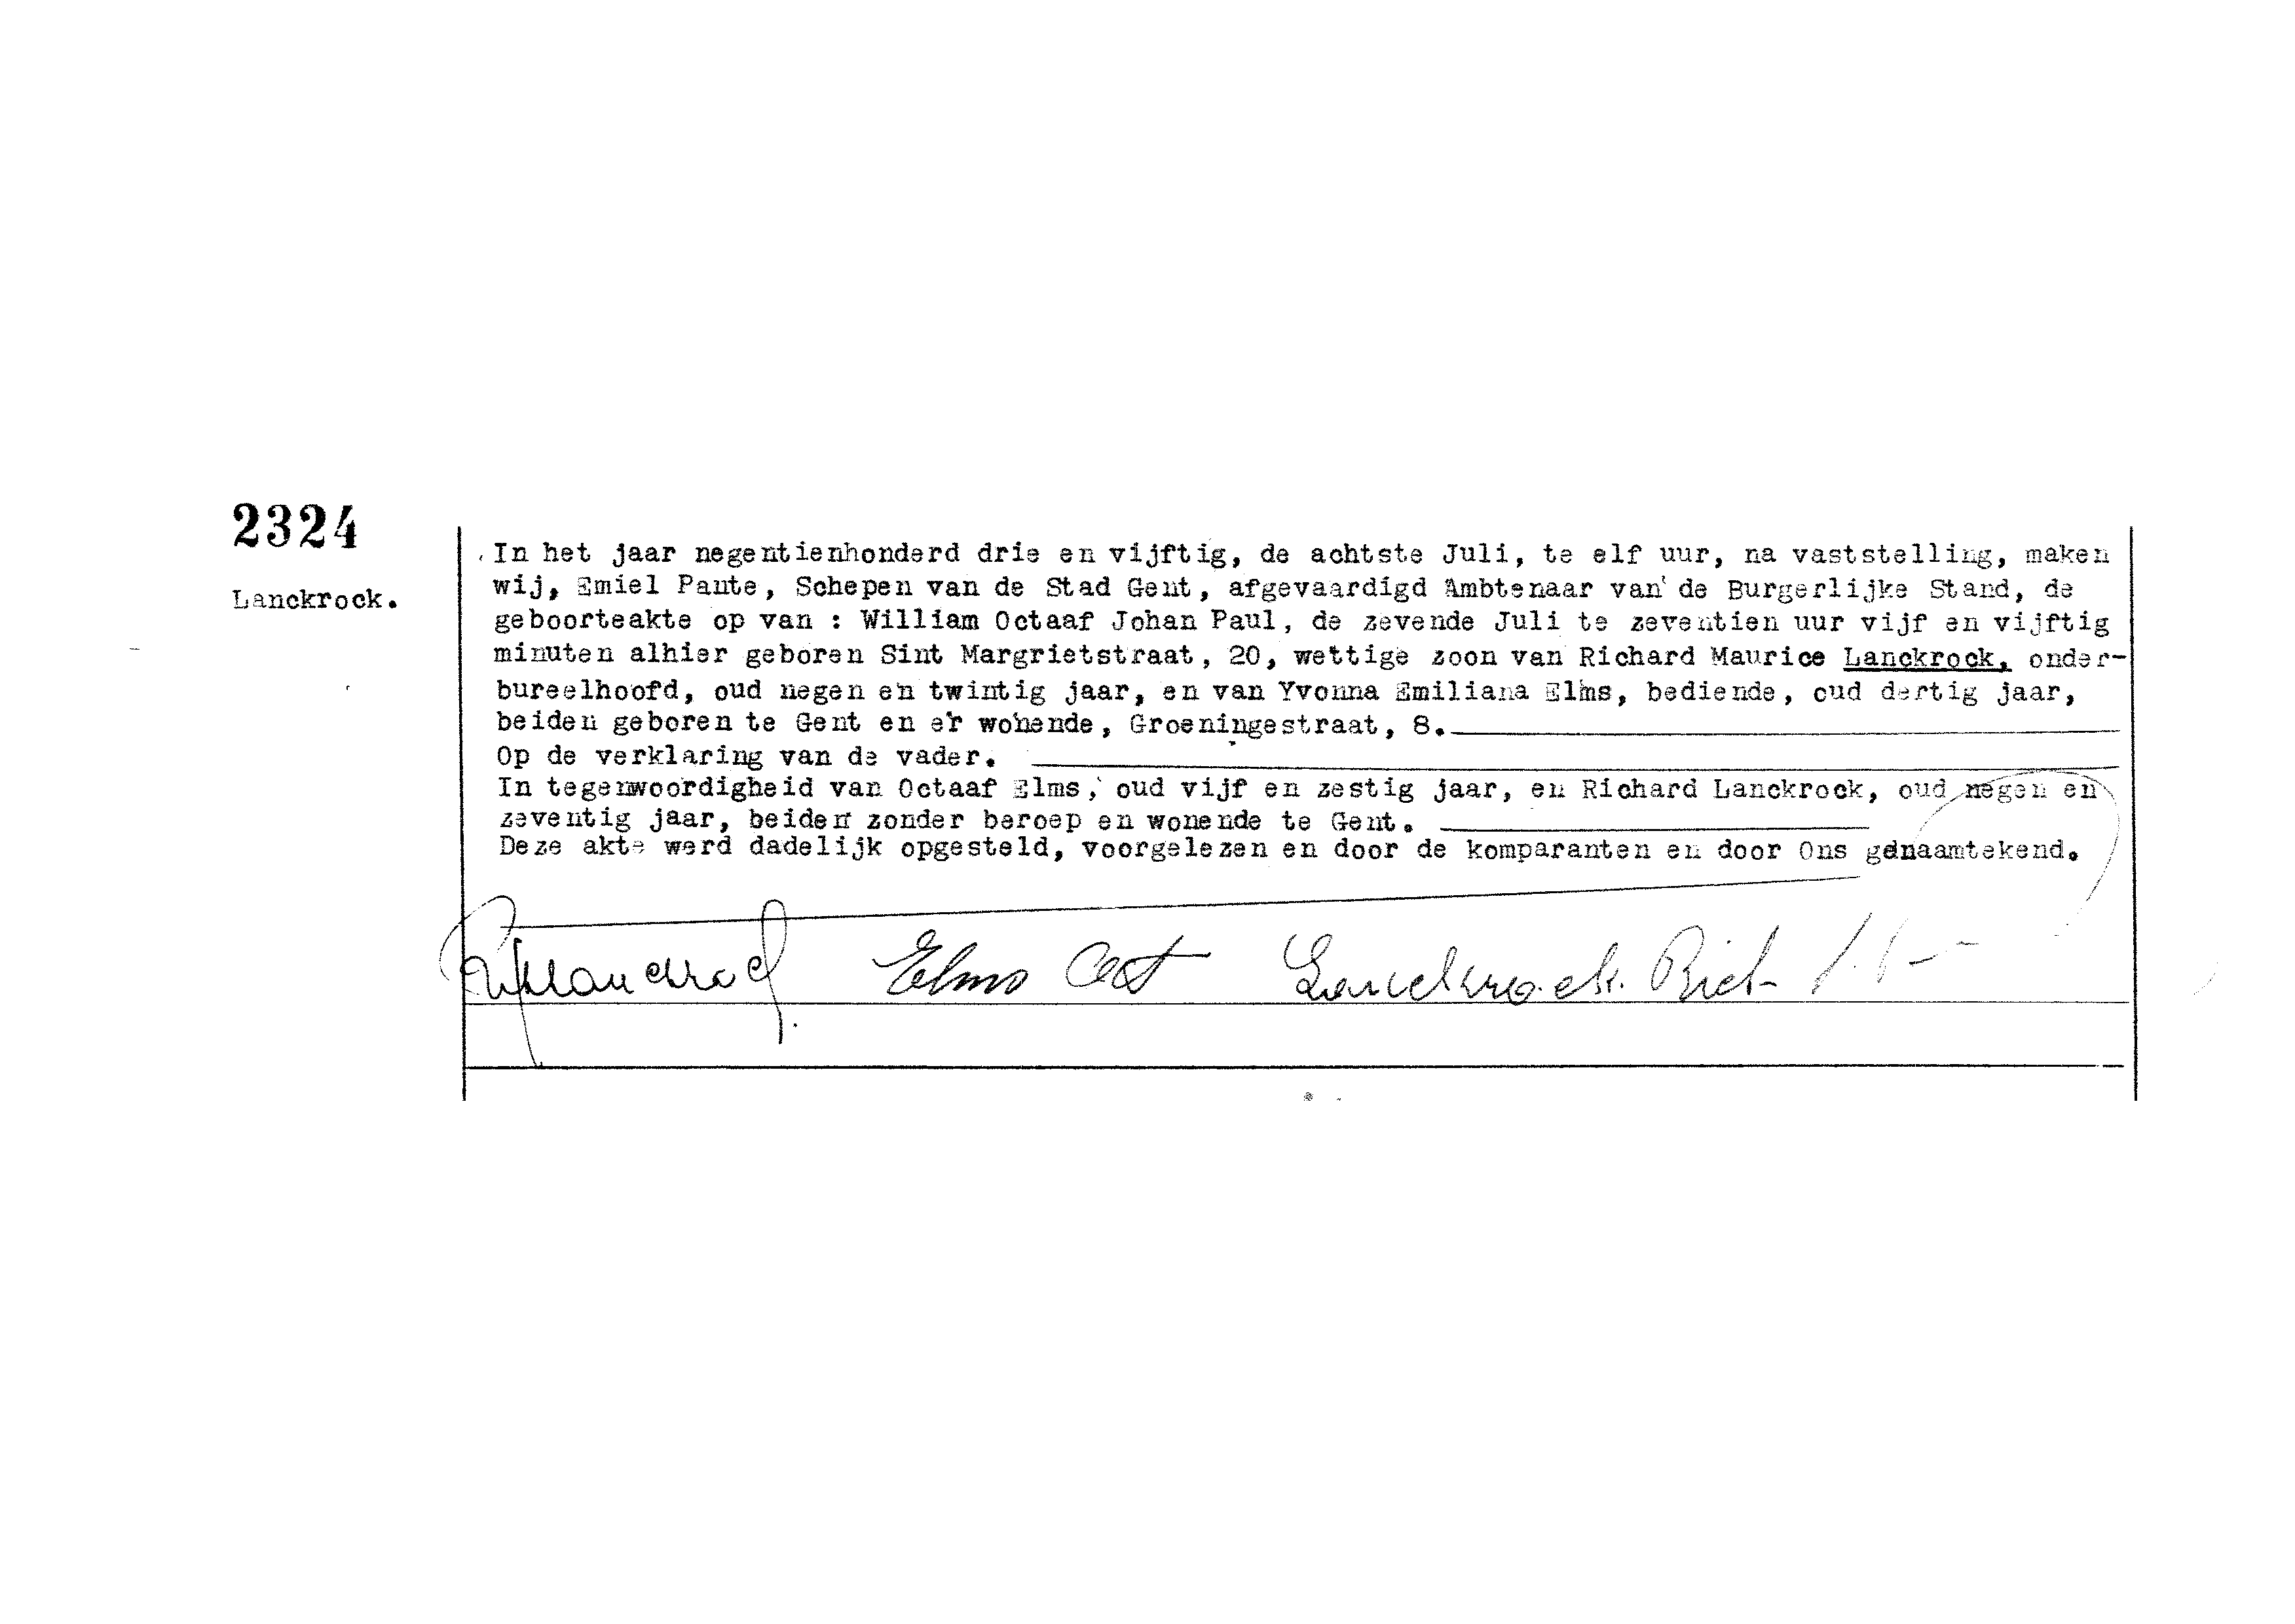 2324
Lanckrock.
In het jaar negentienhonderd drie en vijftig, de achtste Juli, te elf uur, na vaststelling, maken
wij, Emiel Paute, Schepen van de Stad Gent, afgevaardigd Ambtenaar van de Burgerlijke Stand, de
geboorteakte op van : William Octaaf Johan Paul, de zevende Juli te zeventien uur vijf en vijftig
minuten alhier geboren Sint Margrietstraat, 20, wettige zoon van Richard Maurice Lanckrock, onder-
bureelhoofd, oud negen en twintig jaar, en van Yvonna Emiliana Elms, bediende, oud dertig jaar,
beiden geboren te Gent en er wonende, Groeningestraat, 8.
Op de verklaring van de vader.
In tegenwoordigheid van Octaaf Elms, oud vijf en zestig jaar, en Richard Lanckrock, oud negen en
zeventig jaar, beiden zonder beroep en wonende te Gent.
Deze akte werd dadelijk opgesteld, voorgelezen en door de komparanten en door Ons genaamtekend.
Elms Oct Lanckrock. Rich